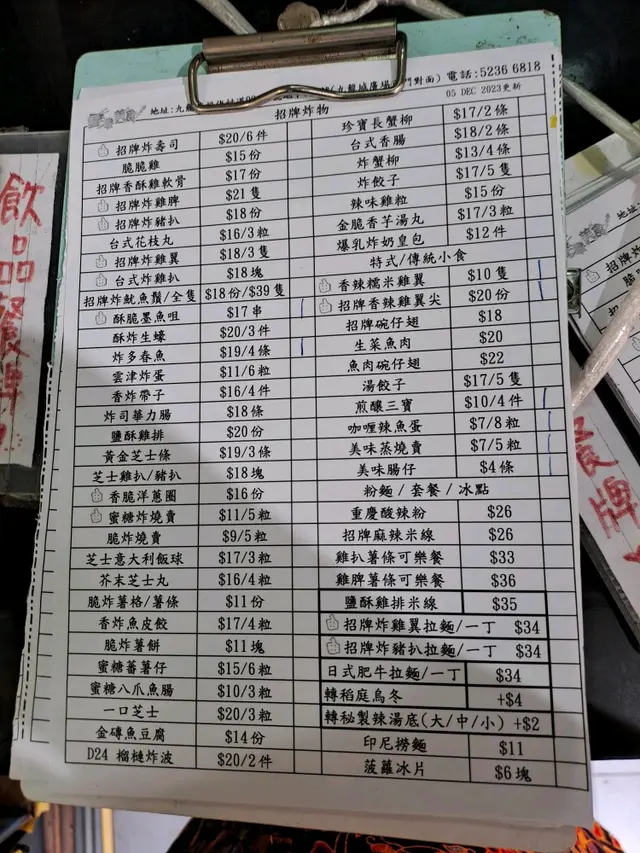 地址:九龍 (九龍城廣場 門對面) 電話:5236 6818
05 DEC 2023更新
招牌炸物
招牌炸壽司 $20/6件
脆脆雞 $15份
招牌香酥雞軟骨 $17份
招牌炸雞脾 $21隻
招牌炸豬扒 $18份
台式花枝丸 $16/3粒
招牌炸雞翼 $18/3隻
台式炸雞扒 $18塊
招牌炸魷魚鬚/全隻 $18份/$39隻
酥脆墨魚咀 $17串
酥炸生蠔 $20/3件
炸多春魚 $19/4條
雲津炸蛋 $11/6粒
香炸帶子 $16/4件
炸司華力腸 $18條
鹽酥雞排 $20份
黃金芝士條 $19/3條
芝士雞扒/豬扒 $18塊
香脆洋蔥圈 $16份
蜜糖炸燒賣 $11/5粒
脆炸燒賣 $9/5粒
芝士意大利飯球 $17/3粒
芥末芝士丸 $16/4粒
脆炸薯格/薯條 $11份
香炸魚皮餃 $17/4粒
脆炸薯餅 $11塊
蜜糖蕃薯仔 $15/6粒
蜜糖八爪魚腸 $10/3粒
一口芝士 $20/3粒
金磚魚豆腐 $14份
D24 榴槤炸波 $20/2件
珍寶長蟹柳 $17/2條
台式香腸 $18/2條
炸蟹柳 $13/4條
炸餃子 $17/5隻
辣味雞粒 $15份
金脆香芋湯丸 $17/3粒
爆乳炸奶皇包 $12件
特式/傳統小食
香辣糯米雞翼 $10隻
招牌香辣雞翼尖 $20份
招牌碗仔翅 $18
生菜魚肉 $20
魚肉碗仔翅 $22
湯餃子 $17/5隻
煎釀三寶 $10/4件
咖喱辣魚蛋 $7/8粒
美味蒸燒賣 $7/5粒
美味腸仔 $4條
粉麵/套餐/冰點
重慶酸辣粉 $26
招牌麻辣米線 $26
雞扒薯條可樂餐 $33
雞脾薯條可樂餐 $36
鹽酥雞排米線 $35
招牌炸雞翼拉麵/一丁 $34
招牌炸豬扒拉麵/一丁 $34
日式肥牛拉麵/一丁 $34
轉稻庭烏冬 +$4
轉秘製辣湯底(大/中/小) +$2
印尼撈麵 $11
菠蘿冰片 $6塊
飲品餐牌
餐牌
地址: